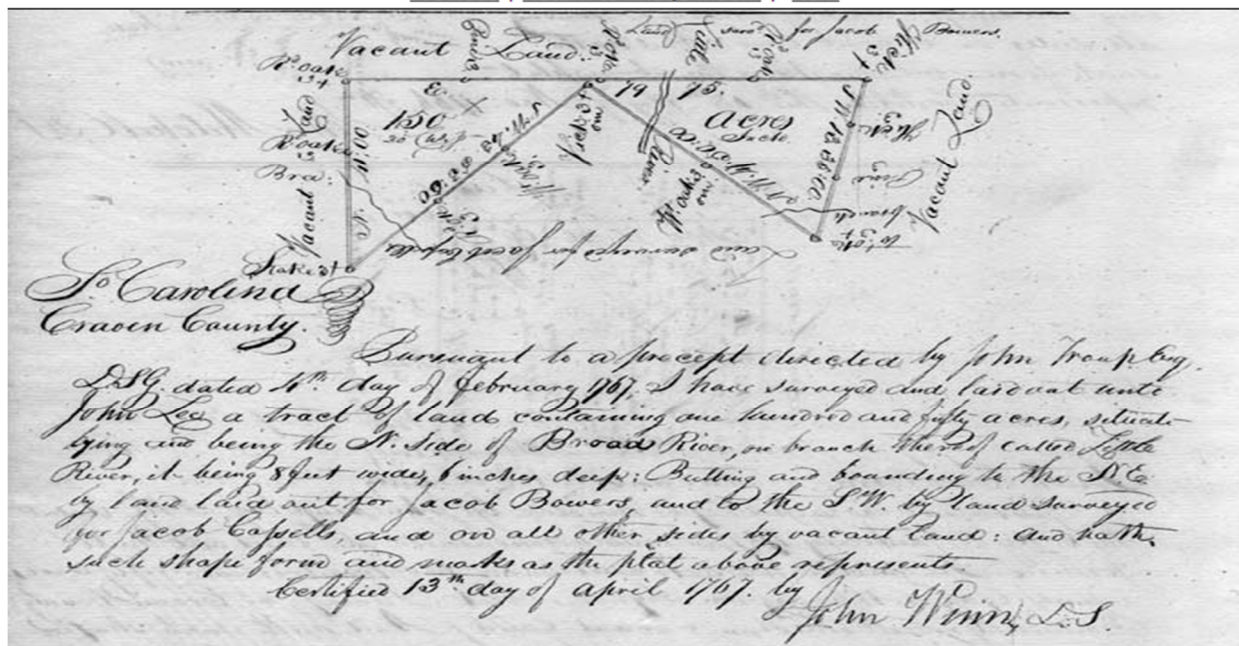 Vacant Land
Pine
Land
Little
for Jacob Bowers.
Ro. oak
3+
79 75.
150
Acres
Ro. oak
Pine
Bra:
River
Vacant Land
Vacant Land.
branch
Land surveyed for Jacob Capsells
Stake 3+
So. Carolina
Craven County.
Pursuant to a precept directed by John Troup Esq.
D.S.G. dated 4th day of February 1767. I have surveyed and laid out unto
John Lee a tract of land containing one hundred and fifty acres, situate
lying and being the N. side of Broad River, on branch thereof called Little
River, it being 8 feet wide, 6 inches deep: Butting and bounding to the N.E.
by land laid out for Jacob Bowers, and to the S.W. by land surveyed
for Jacob Capsells, and on all other sides by vacant Land: and hath
such shape form and marks as the plat above represents.
Certified 13th day of April 1767. by
John Winn, D.S.